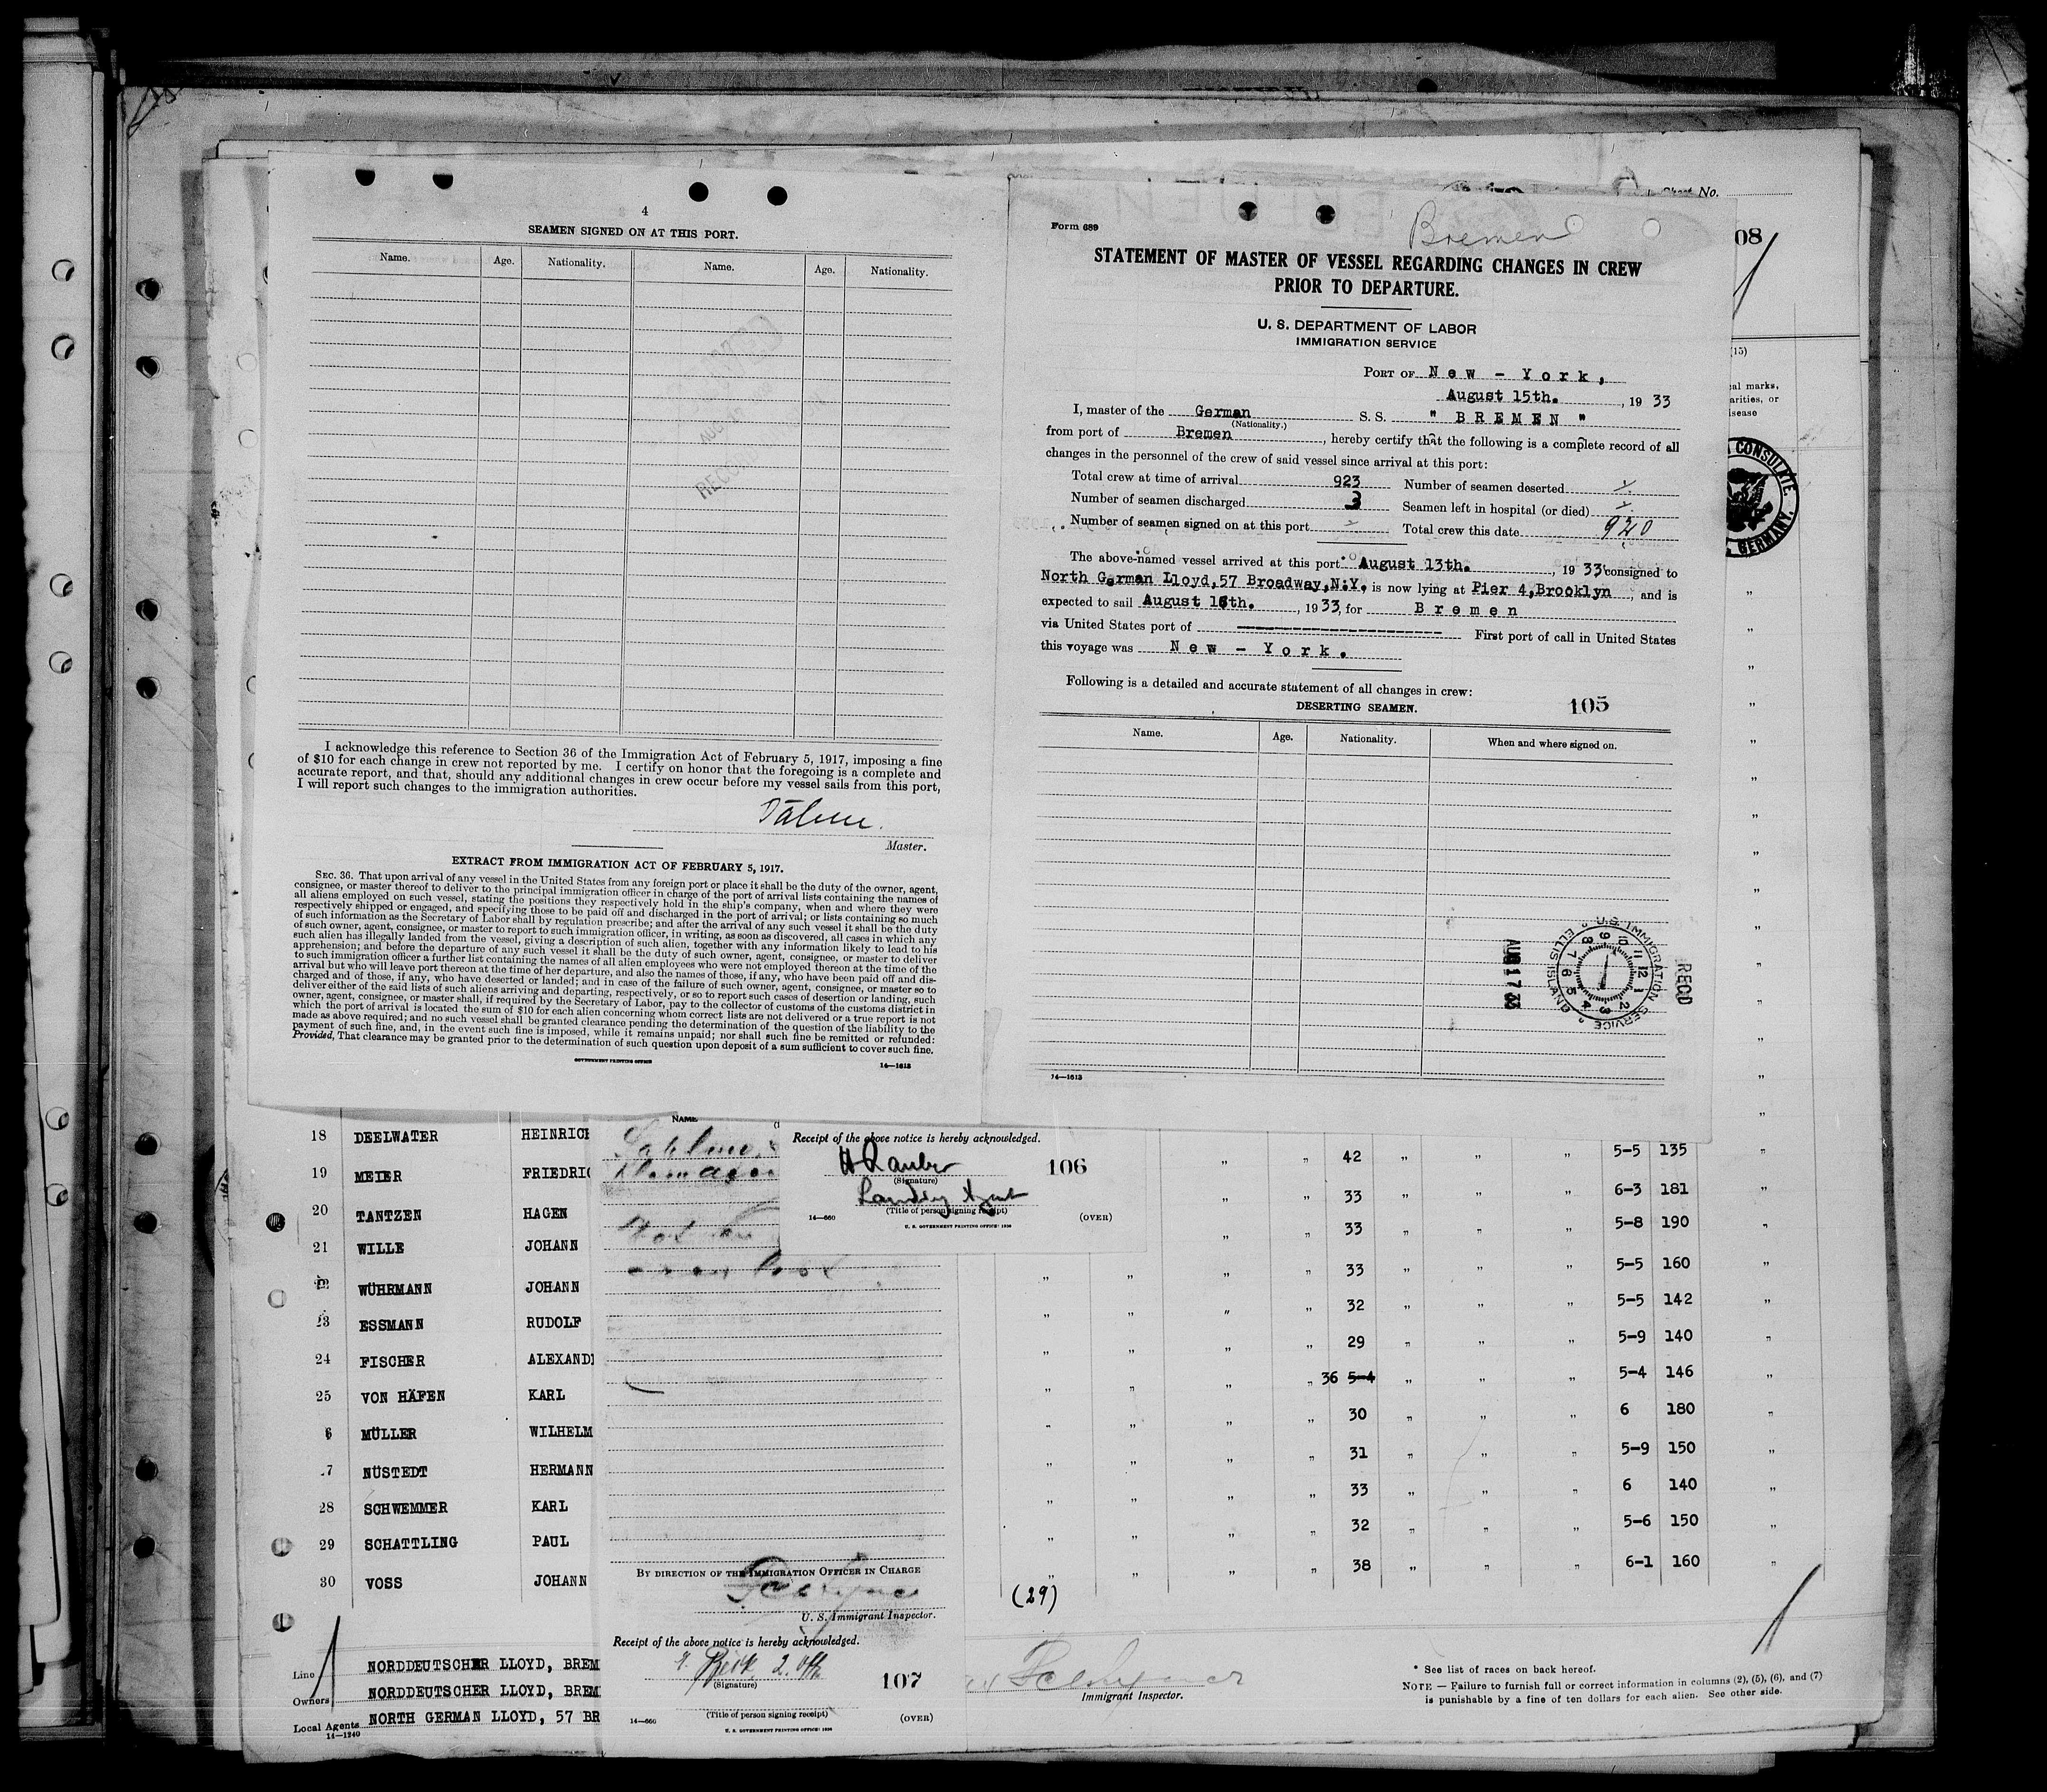 4
SEAMEN SIGNED ON AT THIS PORT.
Name. Age. Nationality. Name. Age. Nationality.
I acknowledge this reference to Section 36 of the Immigration Act of February 5, 1917, imposing a fine
of $10 for each change in crew not reported by me. I certify on honor that the foregoing is a complete and
accurate report, and that, should any additional changes in crew occur before my vessel sails from this port,
I will report such changes to the immigration authorities.
Master.
EXTRACT FROM IMMIGRATION ACT OF FEBRUARY 5, 1917.
SEC. 36. That upon arrival of any vessel in the United States from any foreign port or place it shall be the duty of the owner, agent,
consignee, or master thereof to deliver to the principal immigration officer in charge of the port of arrival lists containing the names of
all aliens employed on such vessel, stating the positions they respectively hold in the ship's company, when and where they were
respectively shipped or engaged, and specifying those to be paid off and discharged in the port of arrival; or lists containing so much
of such information as the Secretary of Labor shall by regulation prescribe; and after the arrival of any such vessel it shall be the duty
of such owner, agent, consignee, or master to report to such immigration officer, in writing, as soon as discovered, all cases in which any
such alien has illegally landed from the vessel, giving a description of such alien, together with any information likely to lead to his
apprehension; and before the departure of any such vessel it shall be the duty of such owner, agent, consignee, or master to deliver
to such immigration officer a further list containing the names of all alien employees who were not employed thereon at the time of the
arrival but who will leave port thereon at the time of her departure, and also the names of those, if any, who have been paid off and dis-
charged and of those, if any, who have deserted or landed; and in case of the failure of such owner, agent, consignee, or master so to
deliver either of the said lists of such aliens arriving and departing, respectively, or so to report such cases of desertion or landing, such
owner, agent, consignee, or master shall, if required by the Secretary of Labor, pay to the collector of customs of the customs district in
which the port of arrival is located the sum of $10 for each alien concerning whom correct lists are not delivered or a true report is not
made as above required; and no such vessel shall be granted clearance pending the determination of the question of the liability to the
payment of such fine, and, in the event such fine is imposed, while it remains unpaid; nor shall such fine be remitted or refunded:
Provided, That clearance may be granted prior to the determination of such question upon deposit of a sum sufficient to cover such fine.
GOVERNMENT PRINTING OFFICE
14—1613
Sheet No.
08
Form 689
Bremen
STATEMENT OF MASTER OF VESSEL REGARDING CHANGES IN CREW
PRIOR TO DEPARTURE.
U. S. DEPARTMENT OF LABOR
IMMIGRATION SERVICE
PORT OF New - York,
August 15th., 1933
I, master of the German S. S. " BREMEN "
(Nationality.)
from port of Bremen, hereby certify that the following is a complete record of all
changes in the personnel of the crew of said vessel since arrival at this port:
Total crew at time of arrival 923 Number of seamen deserted
Number of seamen discharged 3 Seamen left in hospital (or died)
Number of seamen signed on at this port Total crew this date 920
The above-named vessel arrived at this port August 13th., 1933 consigned to
North German Lloyd,57 Broadway,N.Y. is now lying at Pier 4,Brooklyn, and is
expected to sail August 16th., 1933, for Bremen
via United States port of -------------------- First port of call in United States
this voyage was New - York.
Following is a detailed and accurate statement of all changes in crew:
DESERTING SEAMEN.
105
Name. Age. Nationality. When and where signed on.
U.S. IMMIGRATION SERVICE
ELLIS ISLAND
RECD
AUG 17 33
14—1613
(15)
al marks,
arities, or
isease
CONSULATE
GERMANY.
NAME
18 DEELWATER HEINRICH
19 MEIER FRIEDRIC
20 TANTZEN HAGEN
21 WILLE JOHANN
WÜHRMANN JOHANN
23 ESSMANN RUDOLF
24 FISCHER ALEXAND
25 VON HÄFEN KARL
6 MÜLLER WILHELM
7 NÜSTEDT HERMANN
28 SCHWEMMER KARL
29 SCHATTLING PAUL
30 VOSS JOHANN
Receipt of the above notice is hereby acknowledged.
106
(Signature)
Landing Agent
(Title of person signing receipt)
14—660
(OVER)
U. S. GOVERNMENT PRINTING OFFICE
" " 42 " " " 5-5 135 "
" " 33 " " " 6-3 181 "
" " 33 " " " 5-8 190 "
" " " " 33 " " " 5-5 160 "
" " " " 32 " " " 5-5 142 "
" " " " 29 " " " 5-9 140 "
" " " " 36 5-4 " " " 5-4 146 "
" " " " 30 " " " 6 180 "
" " " " 31 " " " 5-9 150 "
" " " " 33 " " " 6 140 "
" " " " 32 " " " 5-6 150 "
" " " " 38 " " " 6-1 160 "
(29)
BY DIRECTION OF THE IMMIGRATION OFFICER IN CHARGE
U. S. Immigrant Inspector.
Receipt of the above notice is hereby acknowledged.
107
(Signature)
(Title of person signing receipt)
14—660
(OVER)
U. S. GOVERNMENT PRINTING OFFICE
Line NORDDEUTSCHER LLOYD, BREM
Owners NORDDEUTSCHER LLOYD, BREM
Local Agents NORTH GERMAN LLOYD, 57 BR
14—1240
Immigrant Inspector.
* See list of races on back hereof.
NOTE — Failure to furnish full or correct information in columns (2), (5), (6), and (7)
is punishable by a fine of ten dollars for each alien. See other side.